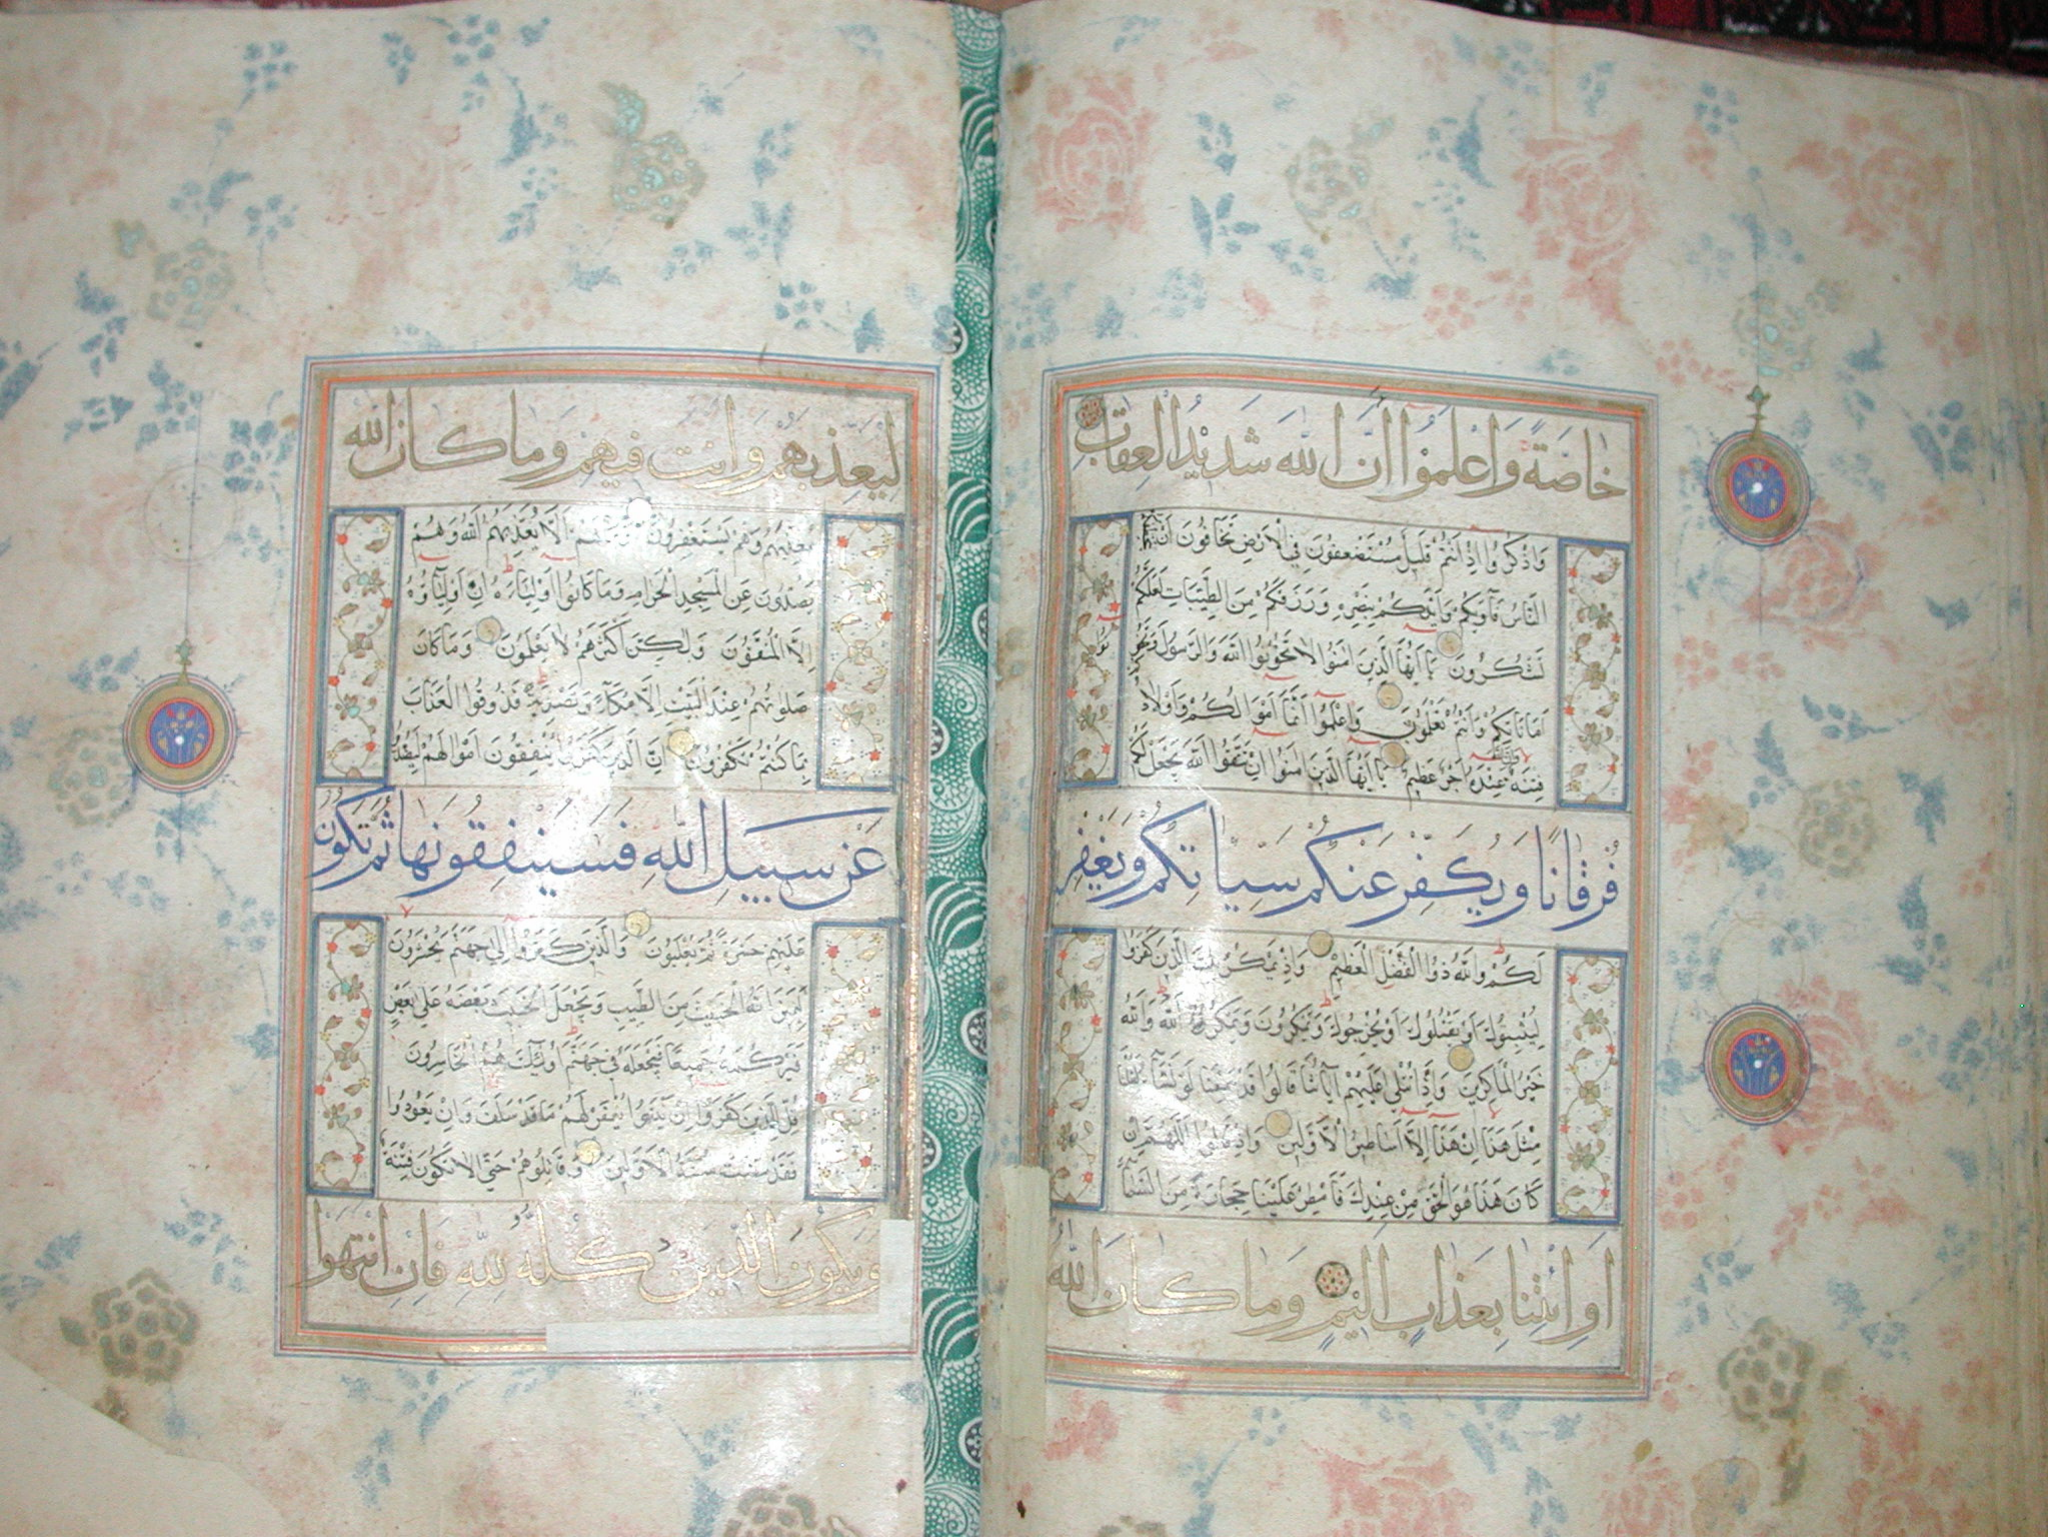 خاصة واعلموا ان الله شديد العقاب
واذكروا اذ انتم قليل مستضعفون في الارض تخافون ان يتخطفكم
الناس فآويكم وايدكم بنصره ورزقكم من الطيبات لعلكم
تشكرون يا ايها الذين امنوا لا تخونوا الله والرسول وتخونوا
اماناتكم وانتم تعلمون واعلموا انما اموالكم واولادكم
فتنة عنده اجر عظيم يا ايها الذين امنوا ان تتقوا الله يجعل لكم
فرقانا ويكفر عنكم سياتكم ويغفر
لكم والله ذو الفضل العظيم واذ يمكر بك الذين كفروا
ليثبتوك او يقتلوك او يخرجوك ويمكرون ويمكر الله والله
خير الماكرين واذا تتلي عليهم آياتنا قالوا قد سمعنا لو نشآء لقلنا
مثل هذا ان هذا الا اساطير الاولين واذ قالوا اللهم ان
كان هذا هو الحق من عندك فامطر علينا حجارة من السمآء
او ائتنا بعذاب اليم وما كان الله
ليعذبهم وانت فيهم وما كان الله
معذبهم وهم يستغفرون وما لهم الا يعذبهم الله وهم
يصدون عن المسجد الحرام وما كانوا اوليآءه ان اوليآؤه
الا المتقون ولكن اكثرهم لا يعلمون وما كان
صلوتهم عند البيت الا مكآء وتصدية فذوقوا العذاب
بما كنتم تكفرون ان الذين كفروا ينفقون اموالهم ليصدوا
عن سبيل الله فسينفقونها ثم تكون
عليهم حسرة ثم يغلبون والذين كفروا الي جهنم يحشرون
ليميز الله الخبيث من الطيب ويجعل الخبيث بعضه علي بعض
فيركمه جميعا فيجعله في جهنم اولئك هم الخاسرون
قل للذين كفروا ان ينتهوا يغفر لهم ما قد سلف وان يعودوا
فقد مضت سنة الاولين وقاتلوهم حتي لا تكون فتنة
ويكون الدين كله لله فان انتهوا